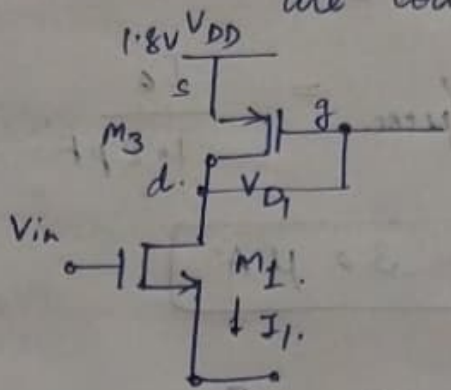 are
1.8V VDD
s
g
M3
d.
VD1
Vin
M1.
↓ I1.